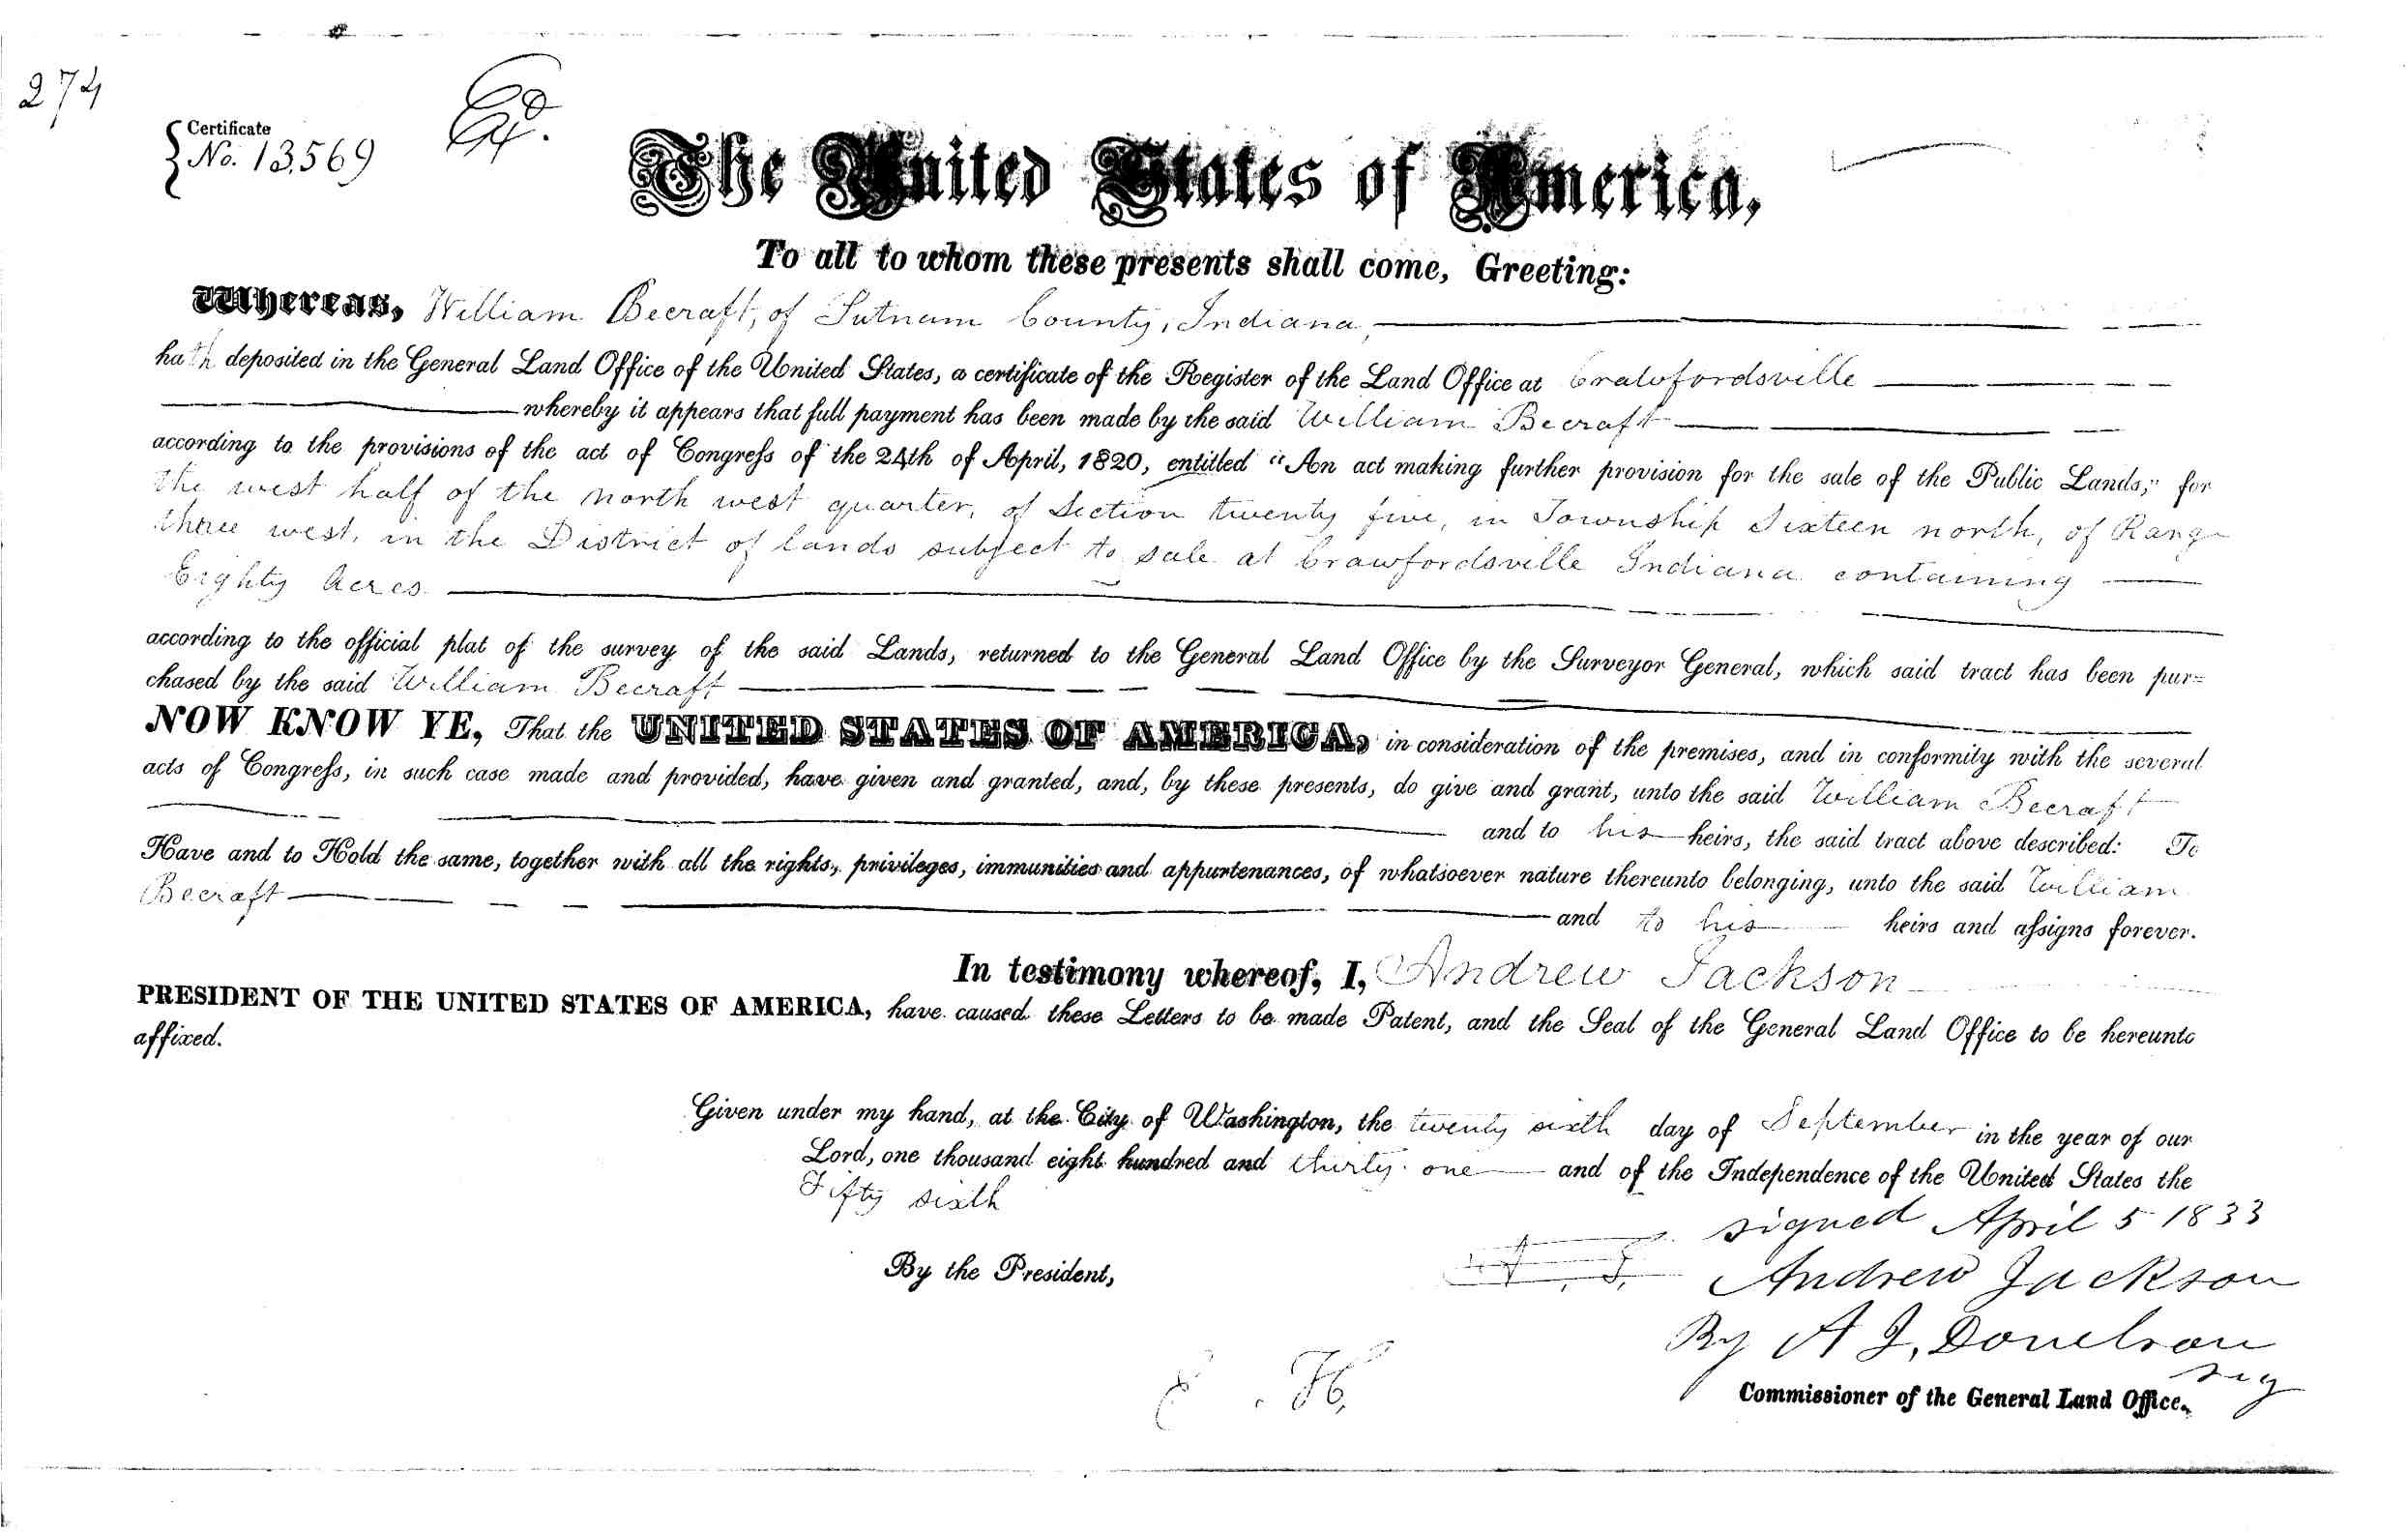 274
Certificate
No. 13,569
Exd.
The United States of America,
To all to whom these presents shall come, Greeting:
Whereas, William Becraft, of Putnam County, Indiana,
hath deposited in the General Land Office of the United States, a certificate of the Register of the Land Office at Crawfordsville
whereby it appears that full payment has been made by the said William Becraft
according to the provisions of the act of Congress of the 24th of April, 1820, entitled "An act making further provision for the sale of the Public Lands," for
the west half of the north west quarter, of Section twenty five, in Township Sixteen north, of Range
three west, in the District of lands subject to sale at Crawfordsville Indiana containing
Eighty Acres
according to the official plat of the survey of the said Lands, returned to the General Land Office by the Surveyor General, which said tract has been pur=
chased by the said William Becraft
NOW KNOW YE, That the UNITED STATES OF AMERICA, in consideration of the premises, and in conformity with the several
acts of Congress, in such case made and provided, have given and granted, and, by these presents, do give and grant, unto the said William Becraft
and to his heirs, the said tract above described: To
Have and to Hold the same, together with all the rights, privileges, immunities and appurtenances, of whatsoever nature thereunto belonging, unto the said William
Becraft and to his heirs and assigns forever.
In testimony whereof, I, Andrew Jackson
PRESIDENT OF THE UNITED STATES OF AMERICA, have caused these Letters to be made Patent, and the Seal of the General Land Office to be hereunto
affixed.
Given under my hand, at the City of Washington, the twenty sixth day of September in the year of our
Lord, one thousand eight hundred and thirty one and of the Independence of the United States the
Fifty sixth
signed April 5 1833
By the President,
Andrew Jackson
By A J. Donelson
E. H.
Commissioner of the General Land Office.